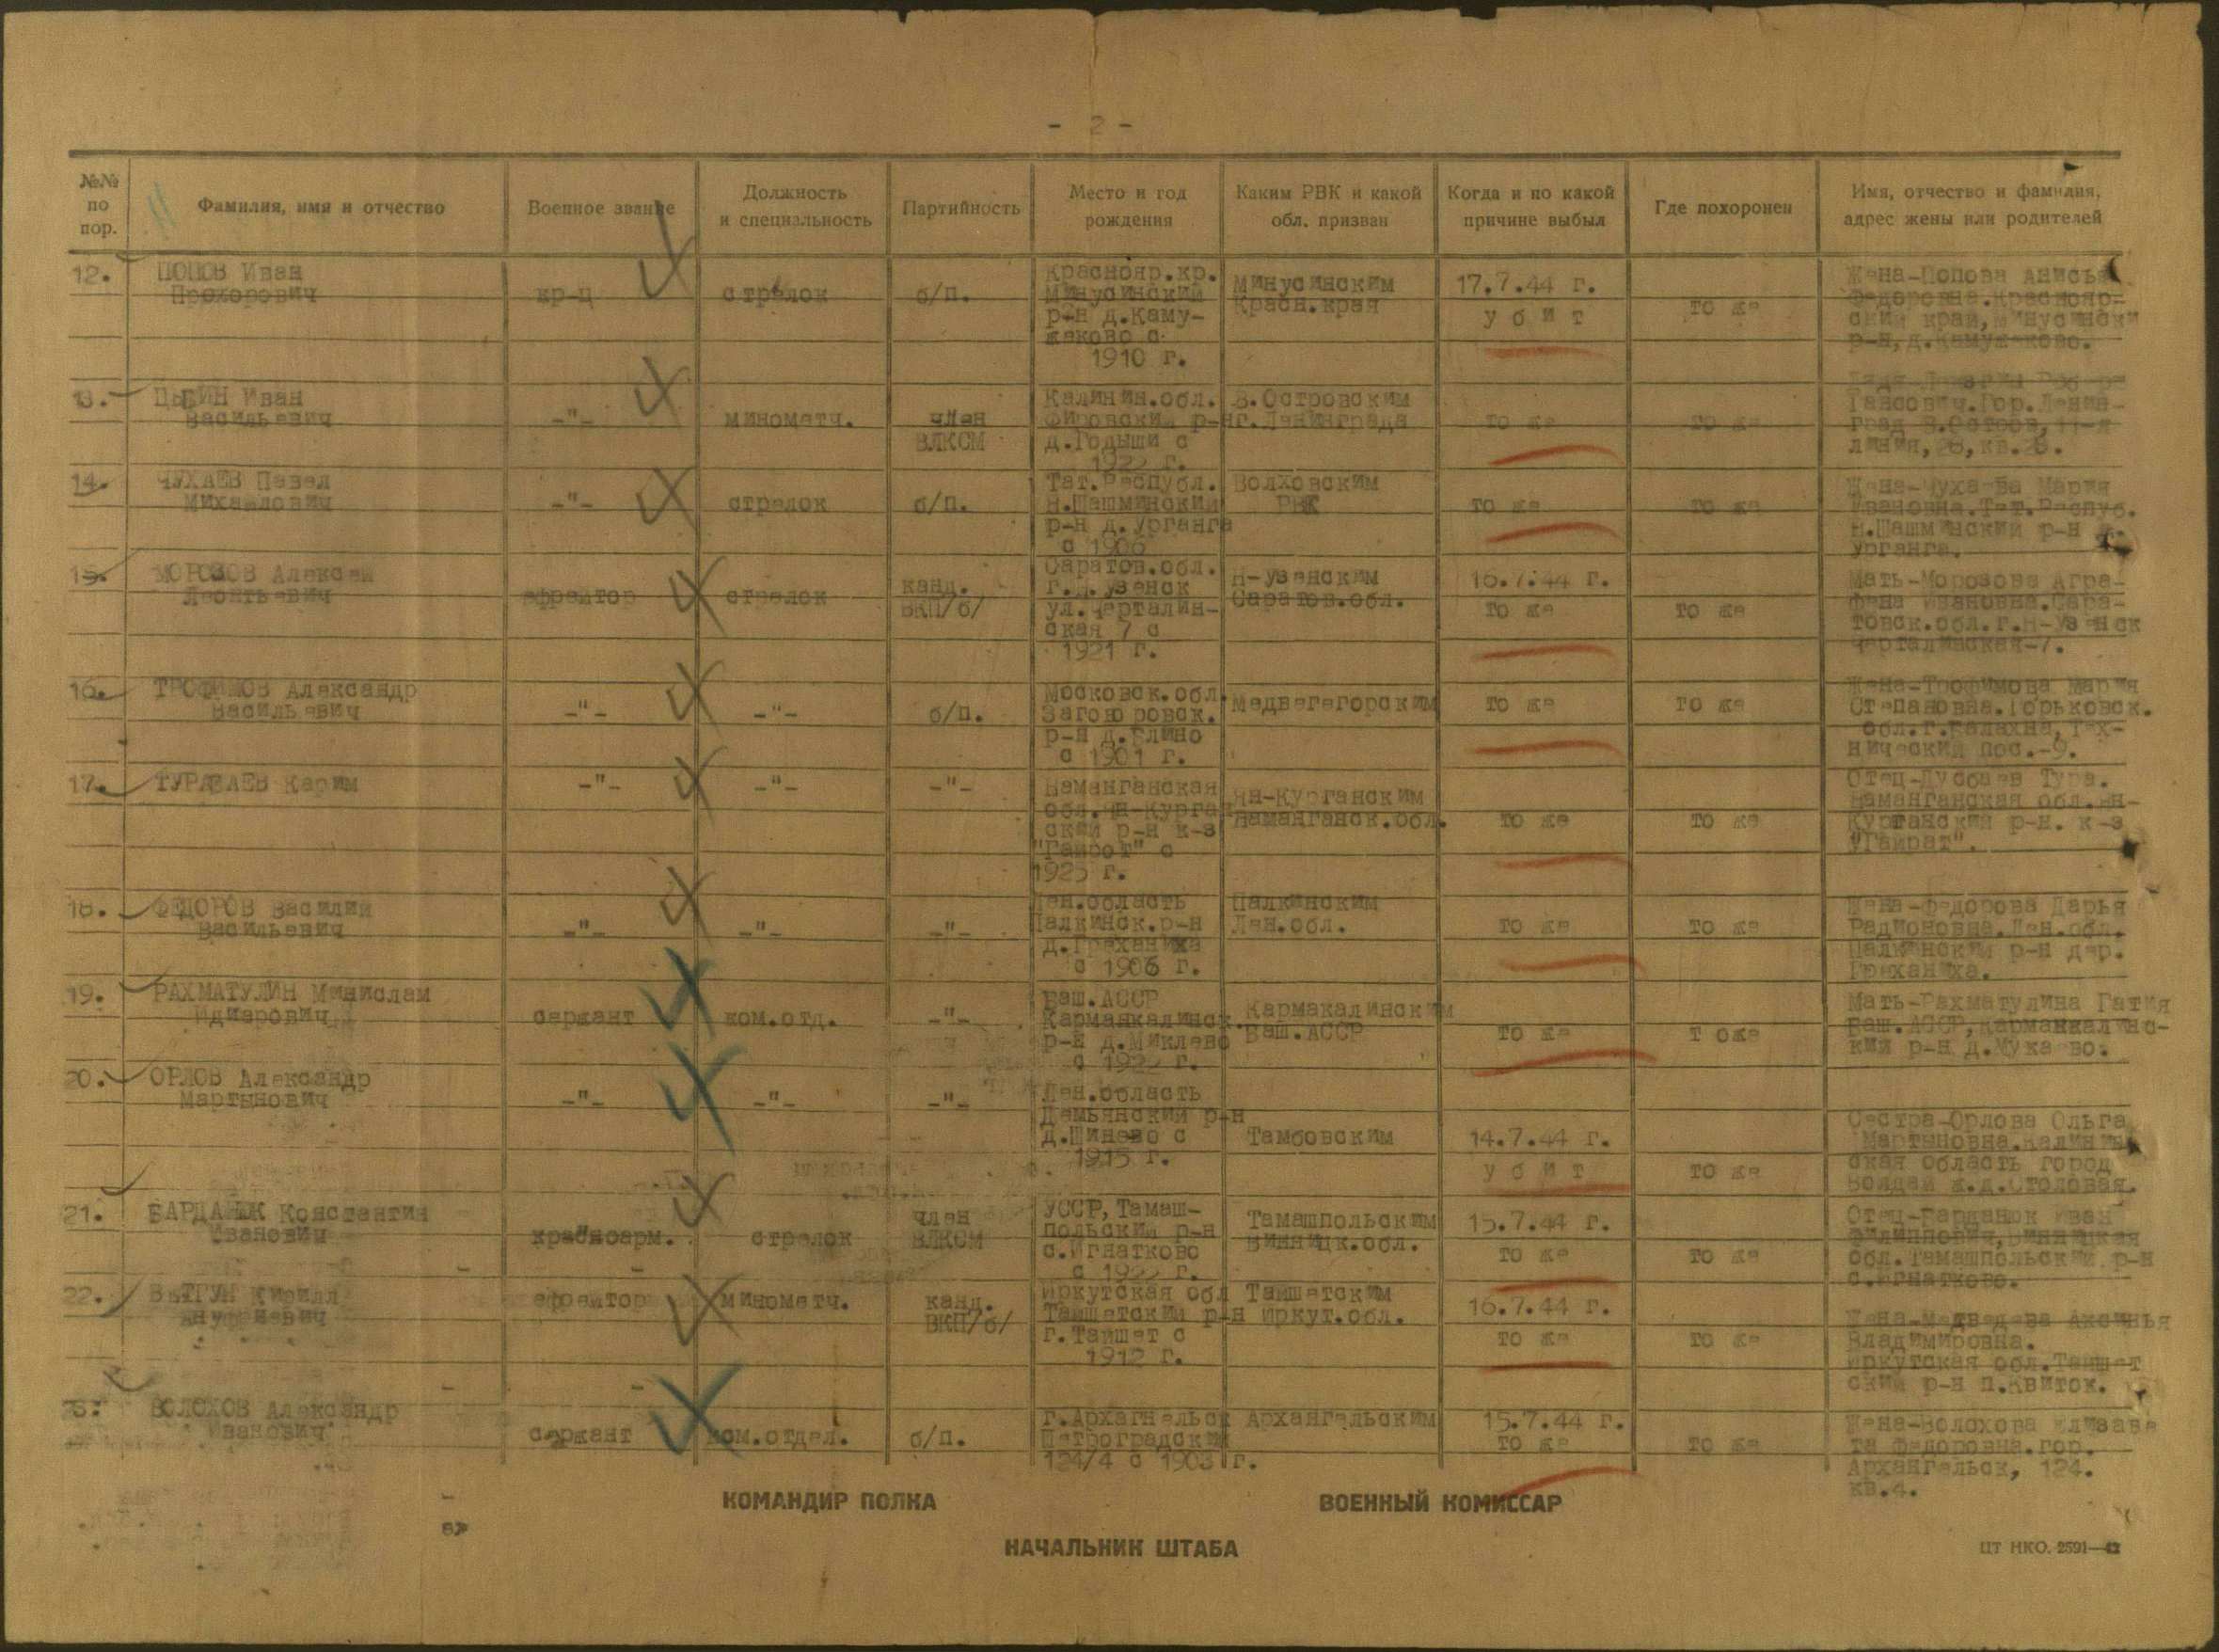 - 2 -
№№ по пор.
Фамилия, имя и отчество
Военное звание
Должность и специальность
Партийность
Место и год рождения
Каким РВК и какой обл. призван
Когда и по какой причине выбыл
Где похоронен
Имя, отчество и фамилия, адрес жены или родителей
12. ПОПОВ Иван
Прохорович
кр-ц
стрелок
б/п.
Краснояр.кр.
Минусинский
р-н д.Каму-
жаково с
1910 г.
Минусинским
Красн.края
17.7.44 г.
у б и т
то же
Жена-Попова Анисья
Федоровна.Краснояр-
ский край,Минусински
р-н,д.Камужаково.
13. Иван
Васильевич
-"-
минометч.
член
ВЛКСМ
Калинин.обл.
Фировский р-н
д.Годыши с
В.Островским
г.Ленинграда
то же
то же
Гансович.Гор.Ленин-
град В.Остров, 11-я
линия, кв.
14. ЧУХАЕВ Павел
Михайлович
-"-
стрелок
б/п.
Тат.Республ.
Н.Шашминский
р-н д.Урганга
с 1906
Волховским
РВК
то же
то же
Жена-Чухаева Мария
Ивановна.Тат.Респуб.
Н.Шашминский р-н
Урганга.
15. МОРОЗОВ Алексей
Леонтьевич
ефрейтор
стрелок
канд.
ВКП/б/
Саратов.обл.
г. Узенск
ул.Черталин-
ская 7 с
1921 г.
Н-Узенским
Саратов.обл.
16.7.44 г.
то же
то же
Мать-Морозова Агра-
фена Ивановна.Сара-
товск.обл.г.Н-Узенск
Черталинская-7.
16. ТРОФИМОВ Александр
Васильевич
-"-
-"-
б/п.
Московск.обл.
р-н д.Елино
с 1901 г.
Медвегегорским
то же
то же
Жена-Трофимова Мария
Степановна.Горьковск.
обл.г.Балахна,Тех-
нический пос.-9.
17. Карим
-"-
-"-
-"-
Наманганская
обл.Ян-Курган
ский р-н к-з
"Гайрот" с
1925 г.
Ян-Курганским
Наманганск.обл.
то же
то же
Отец- Тура.
Наманганская обл.Ян-
Курганский р-н. к-з
"Гайрат".
18. ФЕДОРОВ Василий
Васильевич
-"-
-"-
-"-
Лен.область
Палкинск.р-н
д.Граханиха
с 1906 г.
Палкинским
Лен.обл.
то же
то же
Жена-Федорова Дарья
Радионовна.Лен.обл.
Палкинский р-н дер.
Граханиха.
19. РАХМАТУЛИН Минислам
Идиарович
сержант
ком.отд.
-"-
Баш.АССР
Кармакалинск.
р-н д.Миклево
Кармакалинским
Баш.АССР
то же
т оже
Мать-Рахматулина Гатия
Баш.АССР,Кармакалинс-
кий р-н д.Мукаево.
20. ОРЛОВ Александр
Мартынович
-"-
-"-
-"-
Лен.область
Демьянский р-н
д.Шинево с
1915 г.
Тамбовским
14.7.44 г.
у б и т
то же
Сестра-Орлова Ольга
Мартыновна.Калинин
ская область город
Волдай ж.д.Столовая.
21. БАРДАНЮК Константин
Иванович
красноарм.
стрелок
член
ВЛКСМ
УССР,Тамаш-
польский р-н
с.Игнатково
Тамашпольским
Винницк.обл.
15.7.44 г.
то же
то же
Отец-Барданюк Иван
Филиппович,Винницкая
обл.Тамашпольский р-н
с.Игнатково.
22. Кирилл
Ануфриевич
ефрейтор
минометч.
канд.
ВКП/б/
Иркутская обл
Тайшетский р-н
г.Тайшет с
1912 г.
Тайшетским
Иркут.обл.
16.7.44 г.
то же
то же
Жена-Медведева Аксинья
Владимировна.
Иркутская обл.Тайшет
ский р-н п.Квиток.
23. ВОЛОХОВ Александр
Иванович
сержант
ком.отдел.
б/п.
г.Архагнельск
Петроградский
124/4 с 1903 г.
Архангельским
15.7.44 г.
то же
то же
Жена-Волохова Елизаве
та Федоровна.гор.
Архангельск, 124.
кв.4.
КОМАНДИР ПОЛКА
ВОЕННЫЙ КОМИССАР
НАЧАЛЬНИК ШТАБА
ЦТ НКО. 2591—42